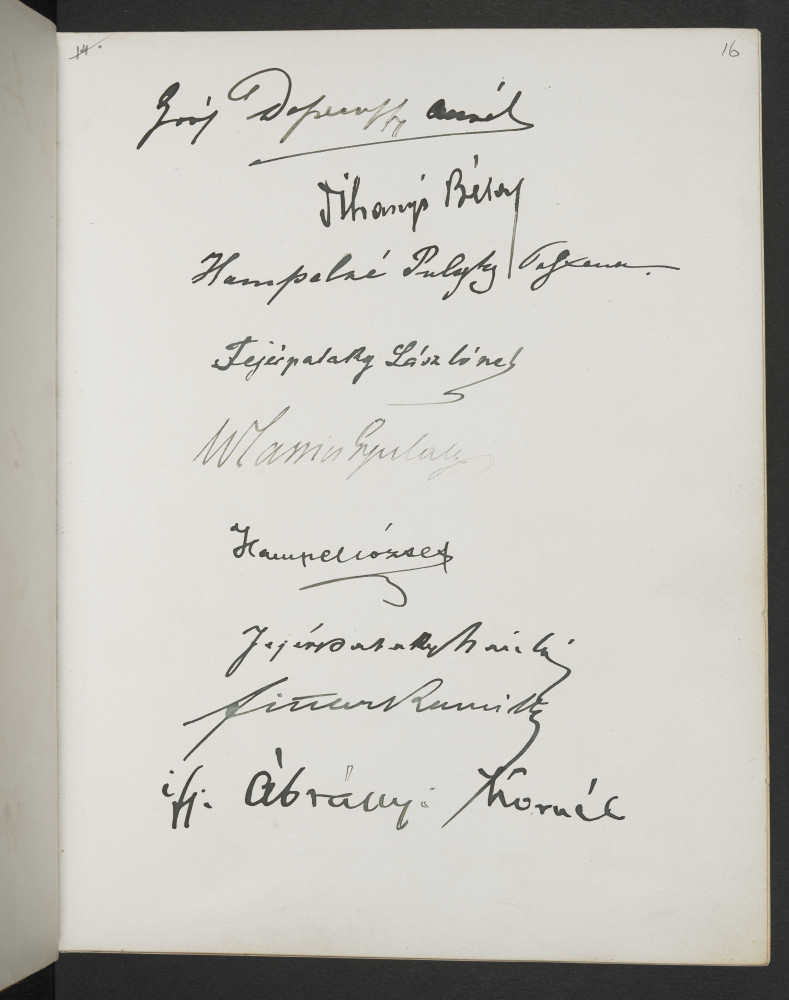 14. 16
Gróf Dessewffy Aurél
Tihanyi Béla
Hampelné Pulszky
Fejérpataky Lászlóné
Wlassics Gyula
Hampel József
Fejérpataky László
Kamilla
ifj. Ábrányi Kornél